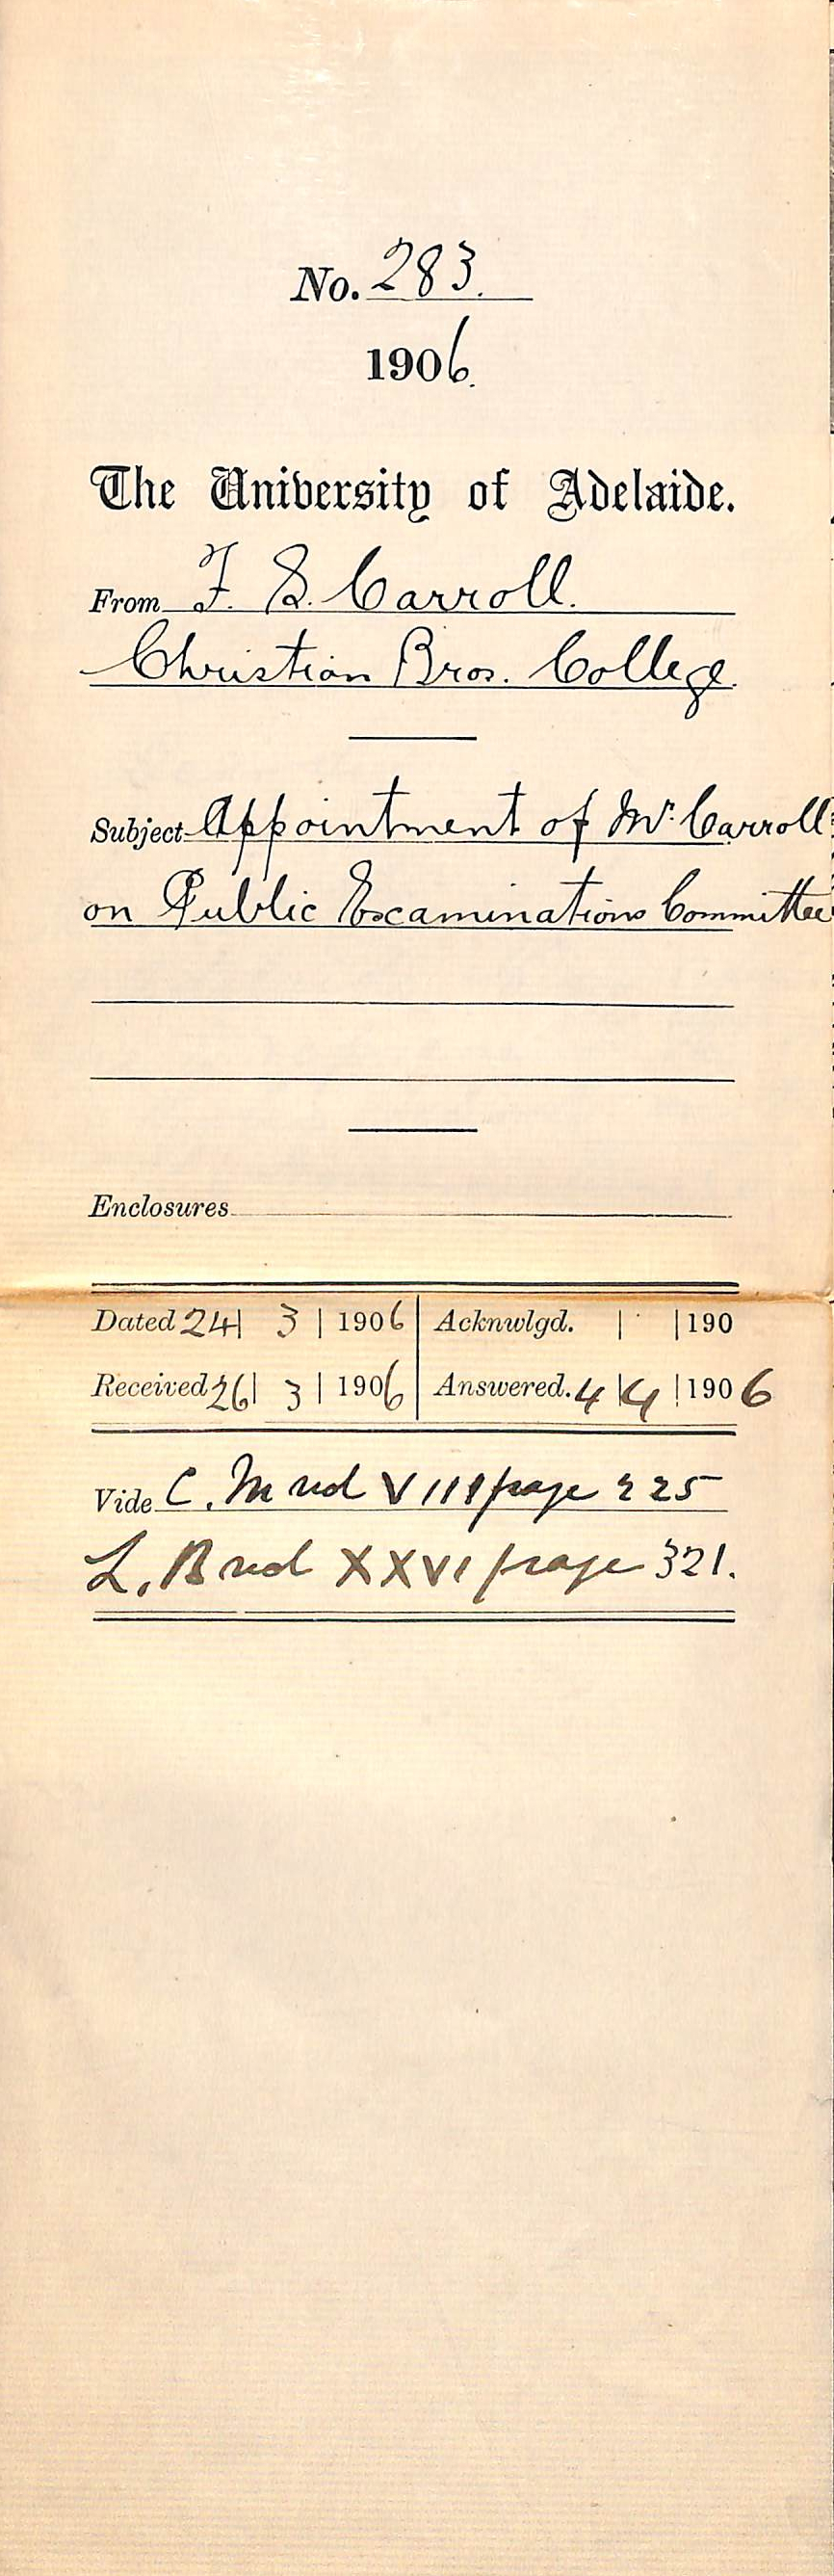 No. 283.
1906.
The University of Adelaide.
From F. S. Carroll.
Christian Bros. College.
Subject Appointment of Mr. Carroll
on Public Examinations Committee
Enclosures
Dated 24 | 3 | 1906 | Acknwlgd. | | 190
Received 26 | 3 | 1906 | Answered. 4 | 4 | 1906
Vide C. M vol VIII page 225
L. B vol XXVI page 321.